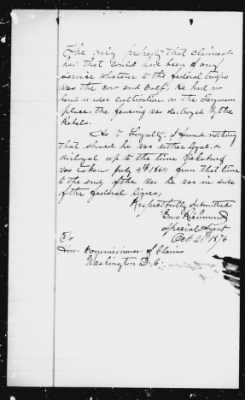 The only property that claimant
had that could have been of any
service whatever to the federal troops
was the cow and calf. He had no
land under cultivation on the
place the fencing was destroyed by the
Rebels.
As to Loyalty, I found nothing
that showed he was either loyal or
disloyal up to the time Vicksburg
was taken July 4th from that time
to the end of the war he was in side
of the federal lines.
Respectfully Submitted
Special Agent
Oct 20th 1876
To
Hon. Commissioners of Claims
Washington D.C.